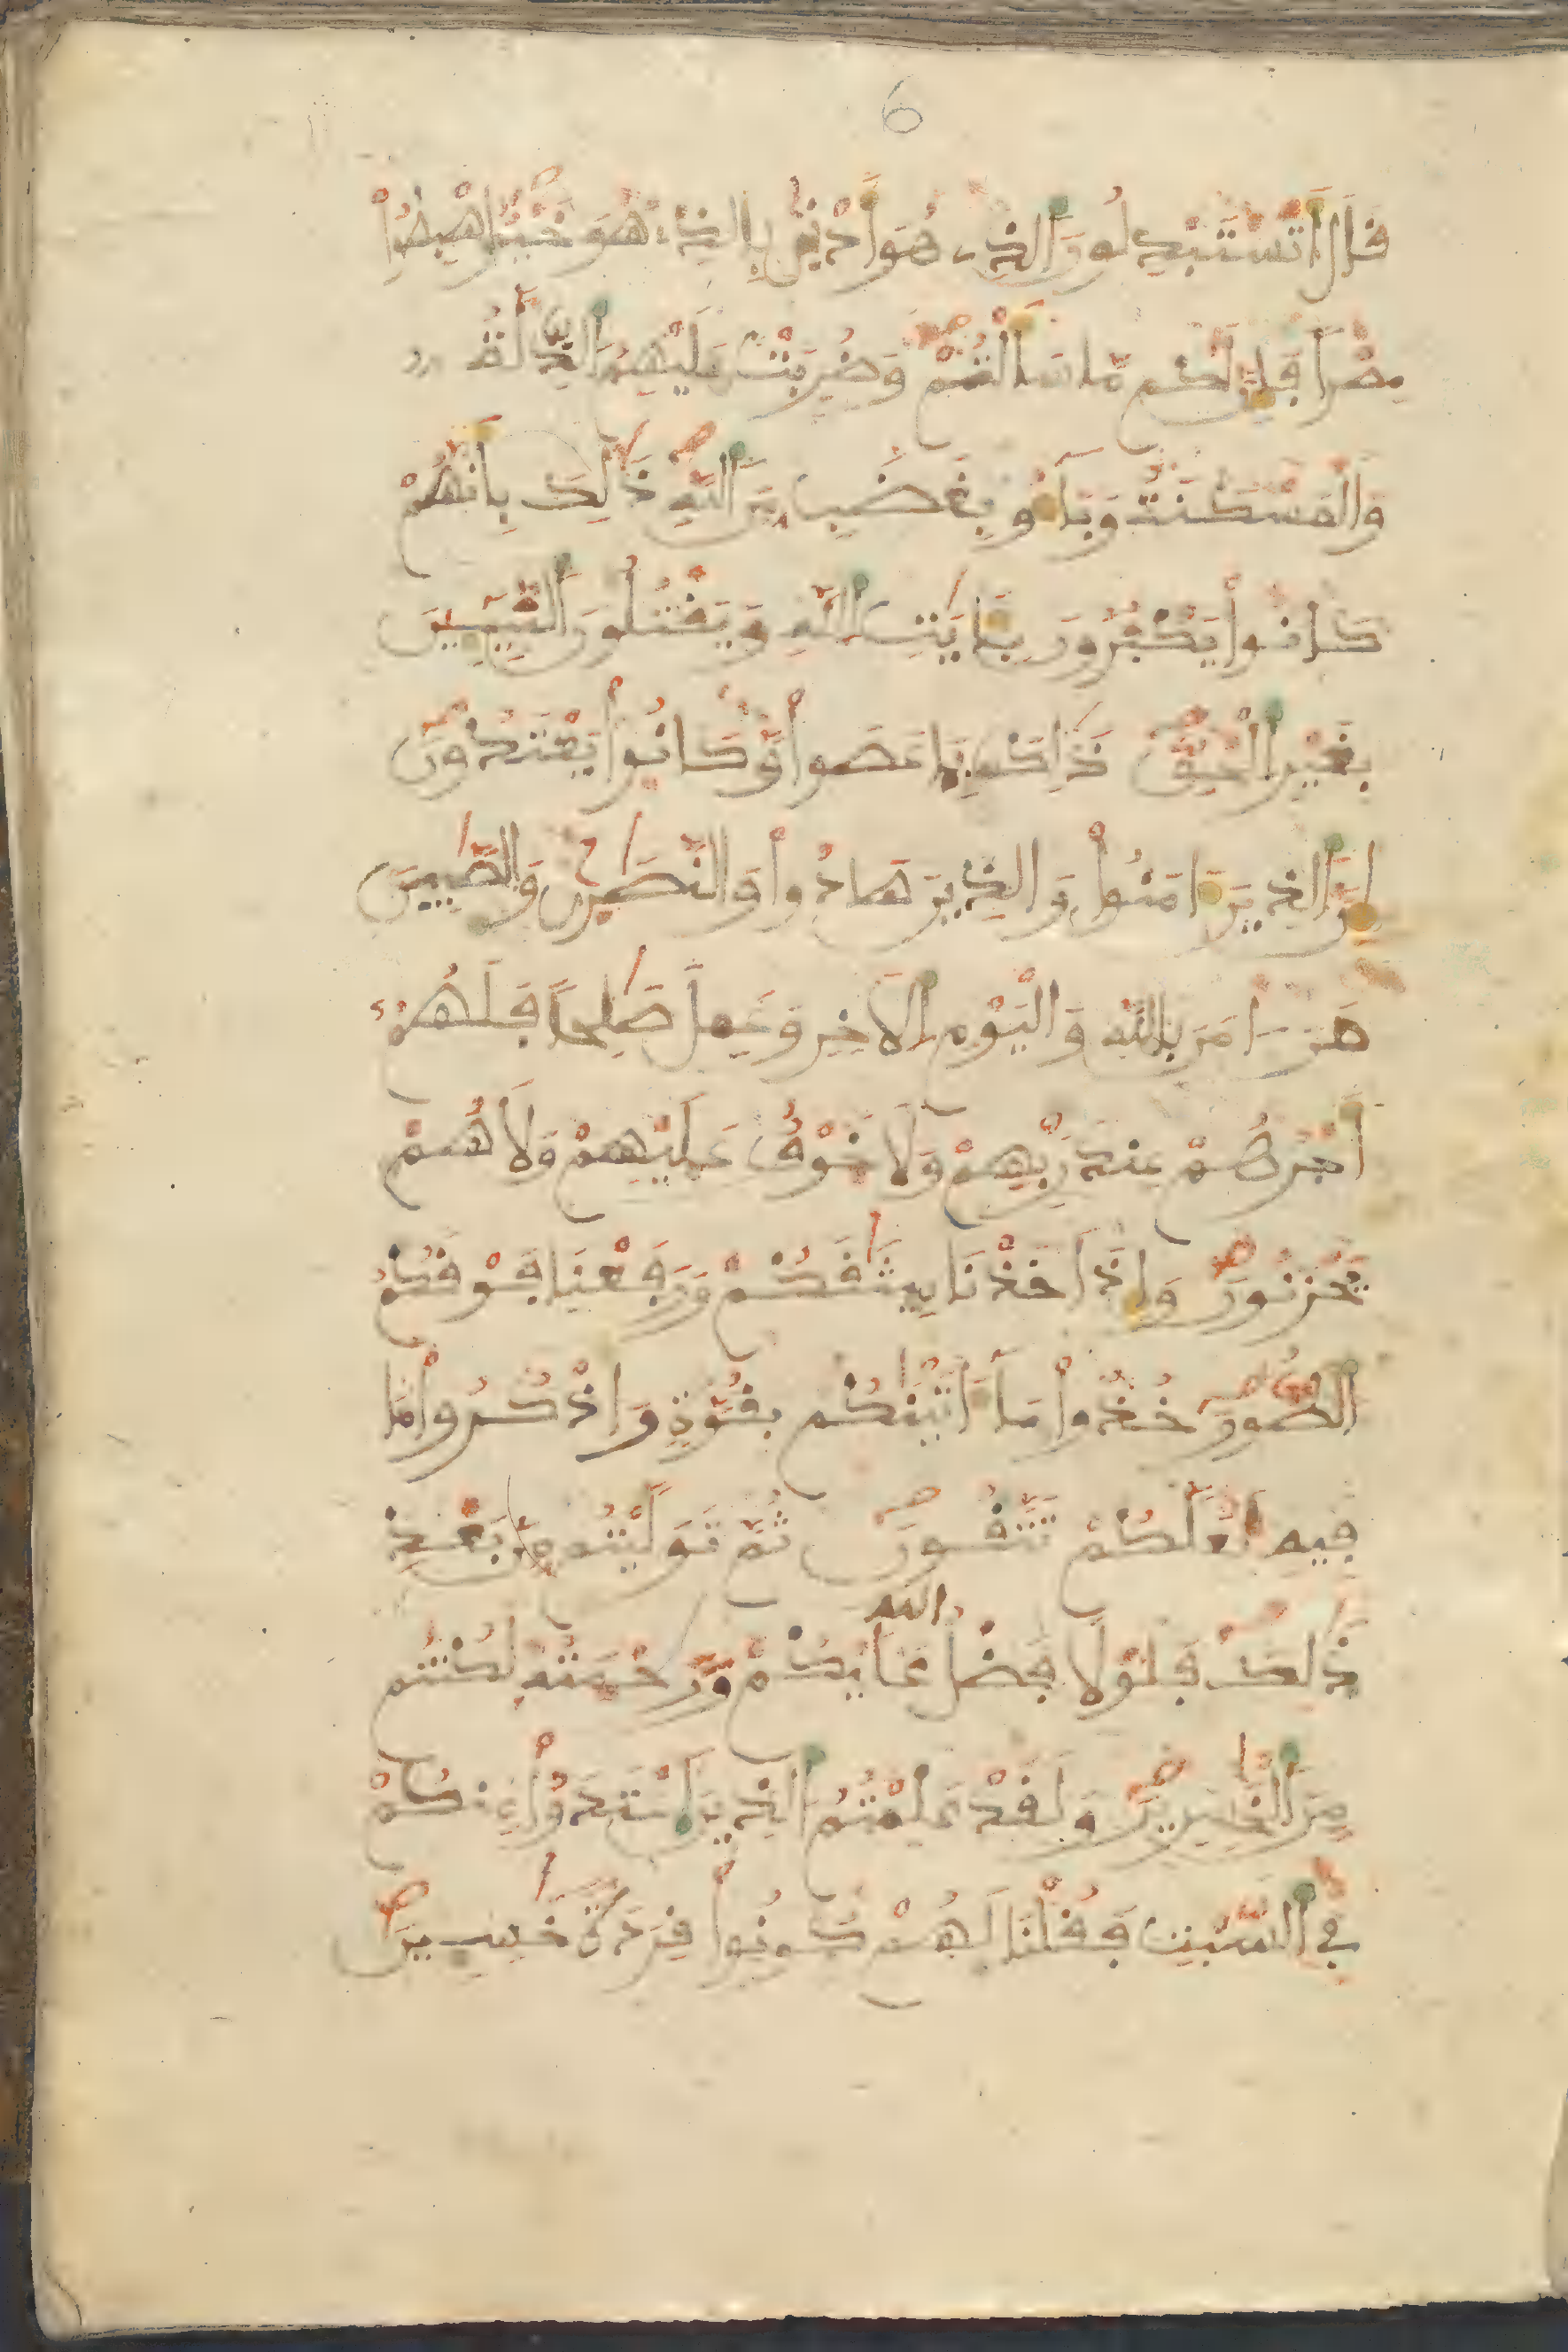 6
قَالَ أَتَسْتَبْدِلُونَ اَلذِے هُوَ أَدْنَىٰ بِالذِے هُوَ خَيْرٌ اِهْبِطُواْ
مِصْراً فَإِنَّ لَكُم مَّا سَأَلْتُمْ وَضُرِبَتْ عَلَيْهِمُ اُلذِّلَّةُ
وَالْمَسْكَنَةُ وَبَآءُو بِغَضَبٍ مِّنَ اَللَّهِ ذَٰلِكَ بِأَنَّهُمْ
كَانُواْ يَكْفُرُونَ بِـَٔايَٰتِ اِللَّهِ وَيَقْتُلُونَ اَلنَّبِيٓـِٕينَ
بِغَيْرِ اِلْحَقِّ ذَٰلِكَ بِمَا عَصَواْ وَّكَانُواْ يَعْتَدُونَ
إِنَّ اَلذِينَ ءَامَنُواْ وَالذِينَ هَادُواْ وَالنَّصَٰرَىٰ وَالصَّٰبِينَ
مَنَ ءَامَنَ بِاللَّهِ وَالْيَوْمِ اِلَاخِرِ وَعَمِلَ صَٰلِحاً فَلَهُمُۥٓ
أَجْرُهُمْ عِندَ رَبِّهِمْ وَلَا خَوْفٌ عَلَيْهِمْ وَلَا هُمْ
يَحْزَنُونَ وَإِذَ اَخَذْنَا مِيثَٰقَكُمْ وَرَفَعْنَا فَوْقَكُمُ
اُلطُّورَ خُذُواْ مَآ ءَاتَيْنَٰكُم بِقُوَّةٍ وَاذْكُرُواْ مَا
فِيهِ لَعَلَّكُمْ تَتَّقُونَ ثُمَّ تَوَلَّيْتُم مِّنۢ بَعْدِ
اللَّهِ
ذَٰلِكَ فَلَوْلَا فَضْلُ عَلَيْكُمْ وَرَحْمَتُهُ لَكُنتُم
مِّنَ اَلْخَٰسِرِينَ وَلَقَدْ عَلِمْتُمُ اُلذِينَ اَعْتَدَوْاْ مِنكُمْ
فِي اِلسَّبْتِ فَقُلْنَا لَهُمْ كُونُواْ قِرَدَةً خَٰسِـِٕينَ